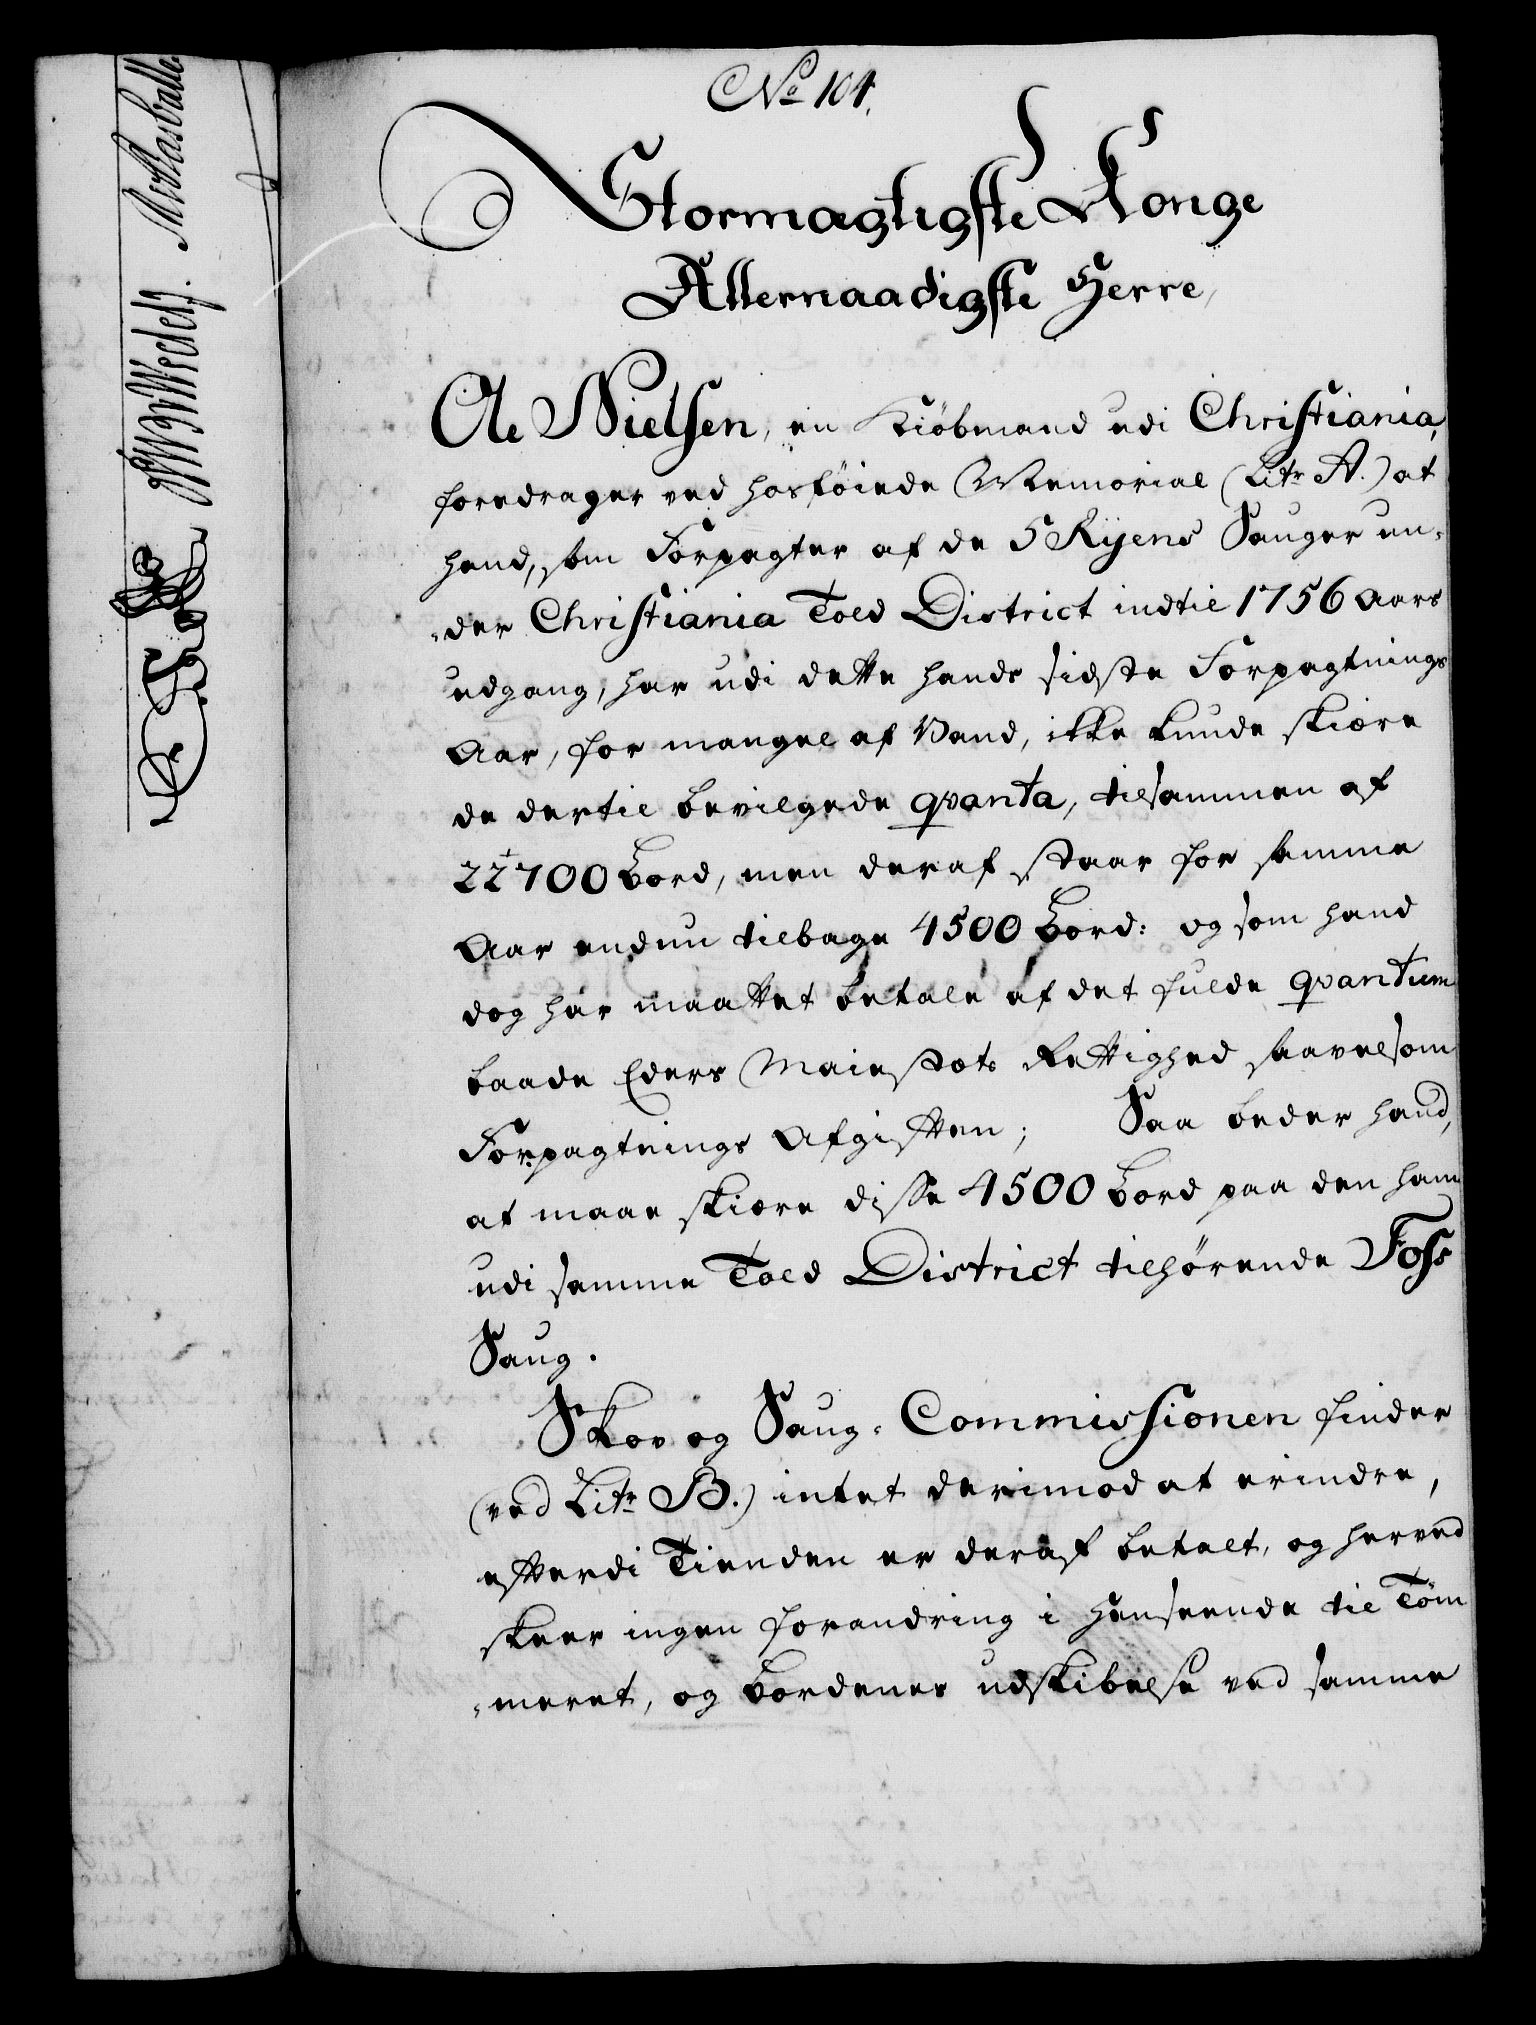 No 104.
Stormægtigste Konge
Allernaadigste Herre,
Ole Nielsen, en Kiöbmand udi Christiania,
foredrager ved hosföiede Memorial (Litr A.) at
hand, som Forpagter af de 5 Ryens Sauger un-
-der Christiania Told District indtil 1756 Aars
udgang, har udi dette hands sidste Forpagtnings
Aar, for mangel af Vand, ikke kunde skiære
de dertil bevilgede qvanta, tilsammen af
22700 Bord, men deraf staar for samme
Aar endnu tilbage 4500 Bord: og som hand
dog har maattet betale af det fulde qvantum
baade Eders Majestæts Rettighed saavelsom
Forpagtnings Afgiften; Saa beder hand,
at maae skiære disse 4500 Bord paa den ham
udi samme Told District tilhörende Foss
Saug.
Skov og Saug-Commissionen finder
(ved Litr B.) intet derimod at erindre,
efterdi Tienden er deraf betalt, og herved
skeer ingen forandring i henseende til Töm
-meret, og Bordenes udskibelse ved samme